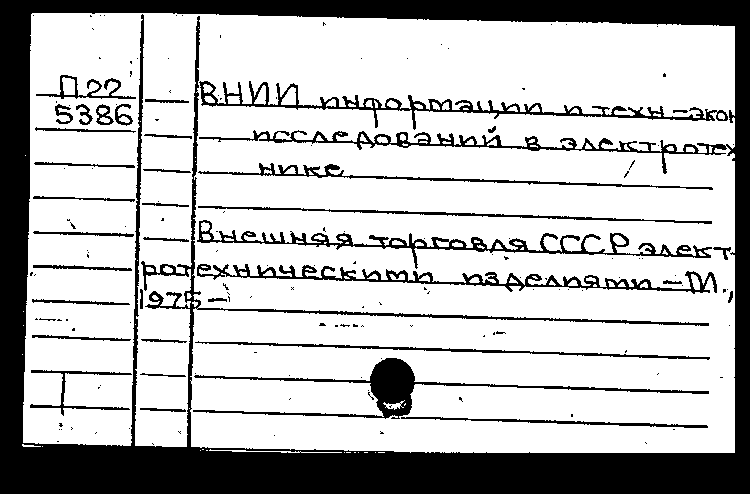 П22
5386
ВНИИ информации и техн.-экон
исследований в электротех
нике
Внешняя торговля СССР элект-
ротехническими изделиями.-М.,
1975-